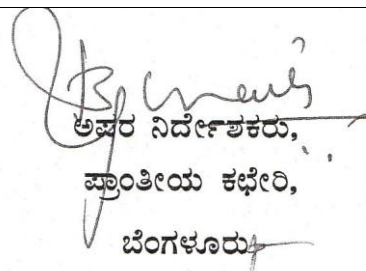 ಅಪರ ನಿರ್ದೇಶಕರು,
ಪ್ರಾಂತೀಯ ಕಛೇರಿ,
ಬೆಂಗಳೂರು